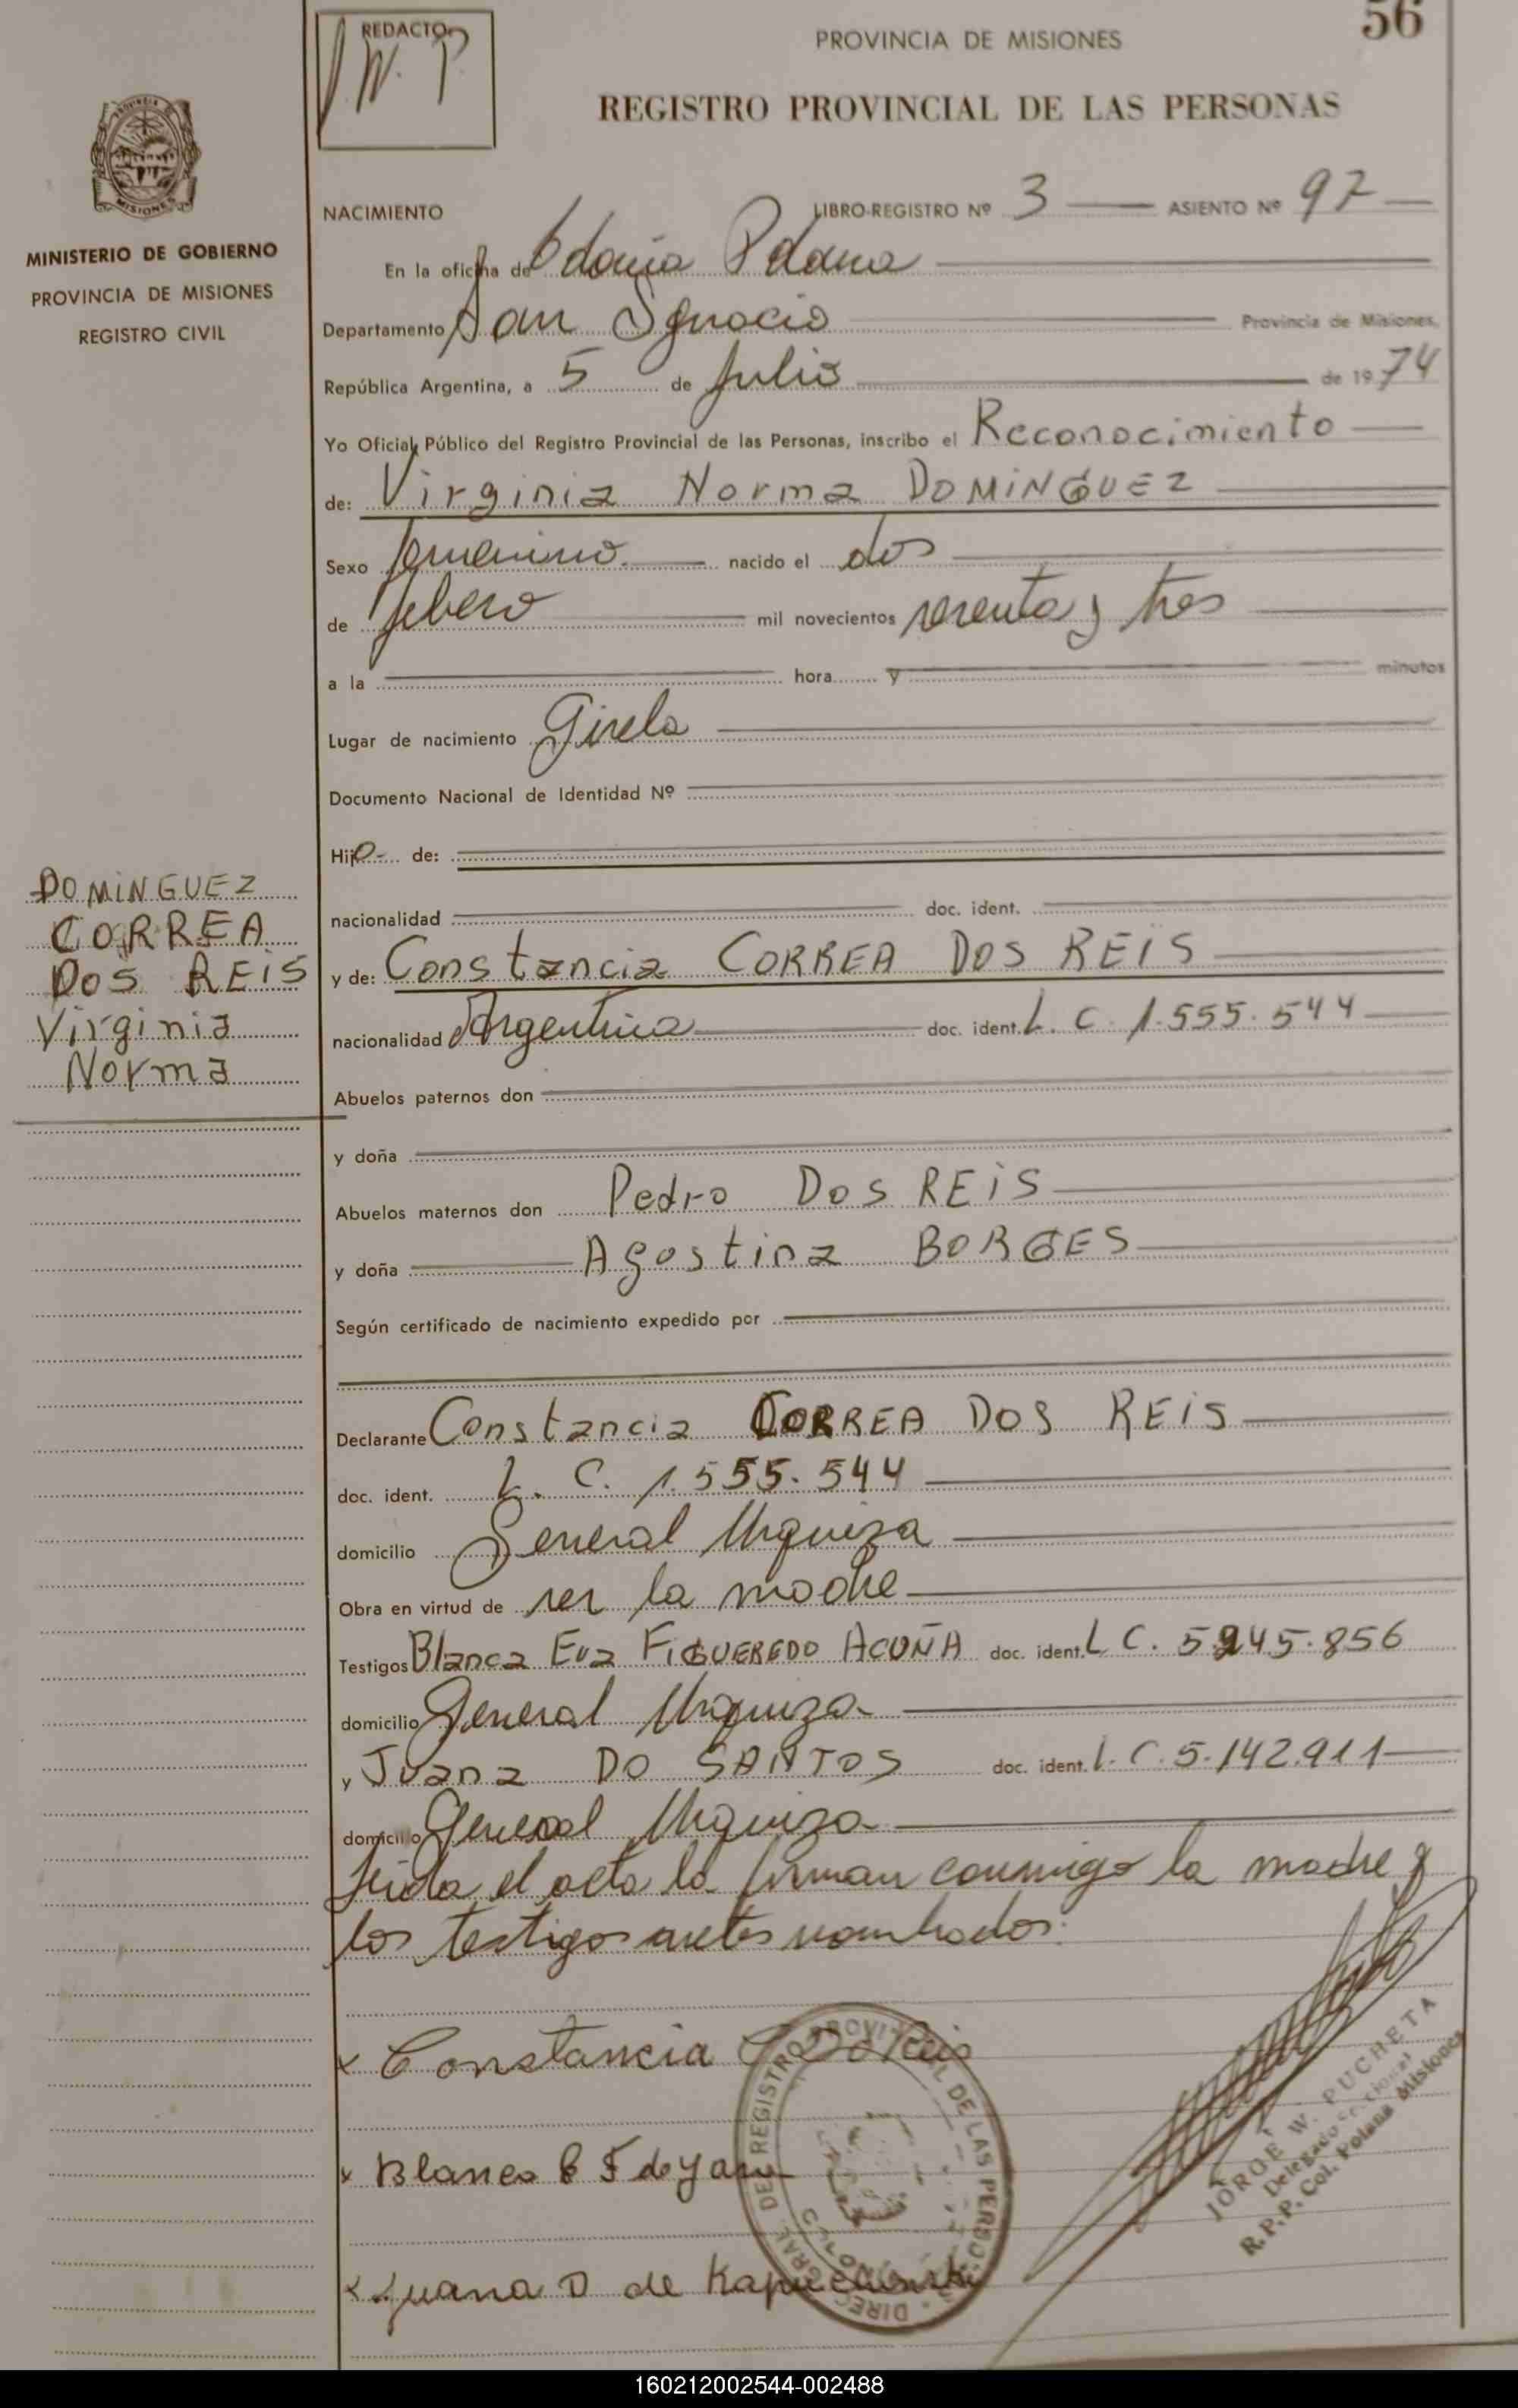 56
REDACTO
W. P.
PROVINCIA DE MISIONES
REGISTRO PROVINCIAL DE LAS PERSONAS
MISIONES
MINISTERIO DE GOBIERNO
PROVINCIA DE MISIONES
REGISTRO CIVIL
NACIMIENTO LIBRO-REGISTRO Nº 3 ASIENTO Nº 97
En la oficina de Colonia Polana
Departamento San Ignacio Provincia de Misiones,
República Argentina, a 5 de Julio de 1974
Yo Oficial Público del Registro Provincial de las Personas, inscribo el Reconocimiento
de: Virginia Norma DOMINGUEZ
Sexo femenino nacido el dos
de febero mil novecientos sesenta y tres
a la hora y minutos
Lugar de nacimiento Gisela
Documento Nacional de Identidad Nº
Hijo de:
nacionalidad doc. ident.
y de: Constancia CORREA DOS REIS
nacionalidad Argentina doc. ident. L. C. 1.555.544
Abuelos paternos don
y doña
Abuelos maternos don Pedro DOS REIS
y doña Agostina BORGES
Según certificado de nacimiento expedido por
Declarante Constancia CORREA DOS REIS
doc. ident. L. C. 1.555.544
domicilio General Urquiza
Obra en virtud de ser la madre
Testigos Blanca Eva FIGUEREDO ACUÑA doc. ident. L C. 5.245.856
domicilio General Urquiza
y Juana DO SANTOS doc. ident. L. C. 5.142.911
domicilio General Urquiza
Leida el acta la firman conmigo la madre y
los testigos antes nombrados.
DOMINGUEZ
CORREA
DOS REIS
Virginia
Norma
x Constancia C Do Reis
x Blanca E F de
x Juana D de
JORGE W. PUCHETA
Delegado Seccional
R.P.P. Col. Polana Misiones
160212002544-002488